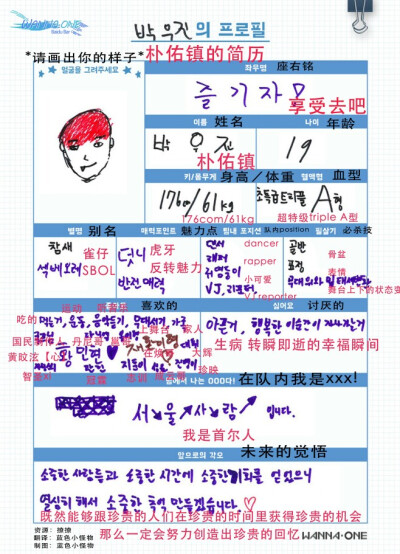 WANNA·ONE
박우진의 프로필
*请画出你的样子*
朴佑镇的简历
얼굴을 그려주세요
좌우명 座右铭
즐기자!
享受去吧
이름 姓名
나이 年龄
박우진
朴佑镇
19
키/몸무게 身高/体重
혈액형 血型
176cm/61kg
176com/61kg
초특급트리플 A형
超特级triple A型
별명 别名
매력포인트 魅力点
팀내 포지션 队内position
필살기 必杀技
참새 雀仔
석배오러 SBOL
덧니 虎牙
반전매력 反转魅力
댄서 dancer
래퍼 rapper
귀염둥이 小可爱
VJ,리포터 VJ reporter
골반 骨盆
표정 表情
무대위와 밑
舞台上下的状态变
喜欢的
싫어요 讨厌的
运动
吃的
上舞台
家人
国民制作人
丹尼尔
黄旼泫【心】
황민현
大辉
智圣
珍映
冠霖
志训
아픈거, 행복한
生病 转瞬即逝的幸福瞬间
팀에서 나는 OOO다!
在队内我是xxx!
서울사람 입니다.
我是首尔人
앞으로의 각오 未来的觉悟
소중한 사람들과 소중한 시간에 소중한 기회를 얻었으니
열심히 해서 소중한 추억 만들겠습니다.♡
既然能够跟珍贵的人们在珍贵的时间里获得珍贵的机会
那么一定会努力创造出珍贵的回忆
资源：撩撩
翻译：蓝色小怪物
制图：蓝色小怪物
WANNA·ONE